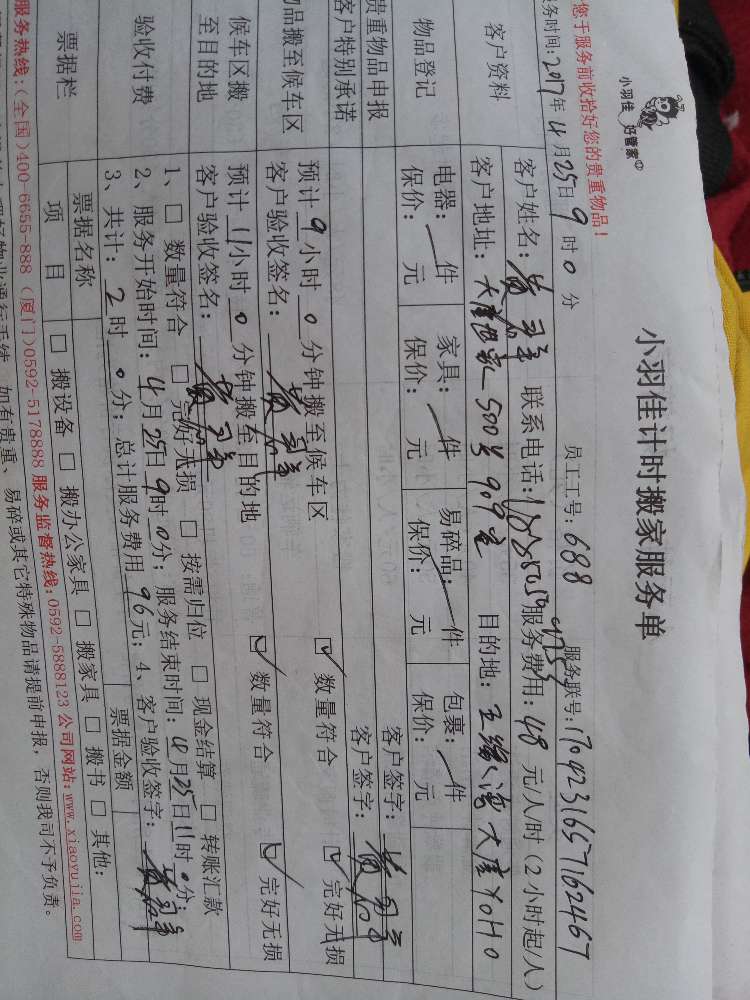 小羽佳 好管家
小羽佳计时搬家服务单
您于服务前收拾好您的贵重物品！
务时间：2017年4月25日9时0分 员工工号：688 服务联号：1704231657162467
客户资料
客户姓名： 联系电话： 服务费用：48元/人/时（2小时起/人）
客户地址： 500号909室 目的地： 大唐YOHO
物品登记
电器：一件 家具：一件 易碎品：一件 包裹：一件
保价： 元 保价： 元 保价： 元 保价： 元
贵重物品申报 客户签字：
客户特别承诺 客户签字：
物品搬至候车区
预计9小时0分钟搬至候车区 ☑数量符合 ☑完好无损
客户验收签名：
候车区搬至目的地
预计11小时0分钟搬至目的地 ☑数量符合 ☑完好无损
客户验收签名：
验收付费
1、□ 数量符合 □ 完好无损 □ 按需归位 □ 现金结算 □ 转账汇款
2、服务开始时间：4月25日9时0分；服务结束时间：4月25日11时0分；
3、共计：2时0分；总计服务费用96元；4、客户验收签字：
票据栏
票据名称 票据金额
项 目 □ 搬设备 □ 搬办公家具 □ 搬家具 □ 搬书 □ 其他：
服务热线：（全国）400-6655-888（厦门）0592-5178888 服务监督热线：0592-5888123 公司网站：www.xiaoyujia.com
物业通行手续，如有贵重、易碎或其它特殊物品请提前申报，否则我司不予负责。